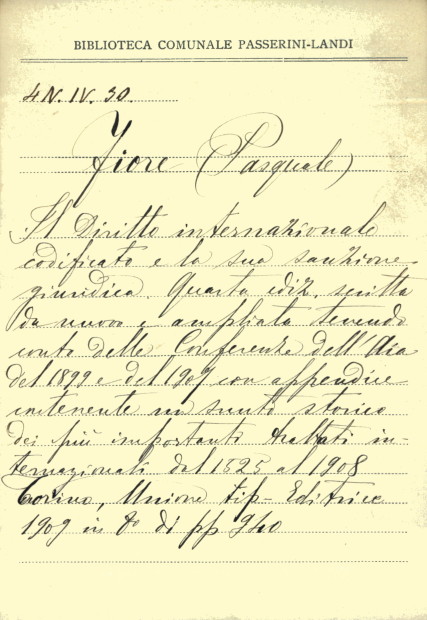 BIBLIOTECA COMUNALE PASSERINI-LANDI
4N.IV.30.
Fiore (Pasquale)
Il Diritto internazionale
codificato e la sua sanzione
giuridica. Quarta ediz. scritta
da nuovo e ampliata tenendo
conto delle Conferenze dell'Aia
del 1899 e del 1907 con appendice
contenente un sunto storico
dei più importanti trattati in-
ternazionali dal 1825 al 1908
Torino, Unione tip-Editrice
1909 in 8° di pp 940